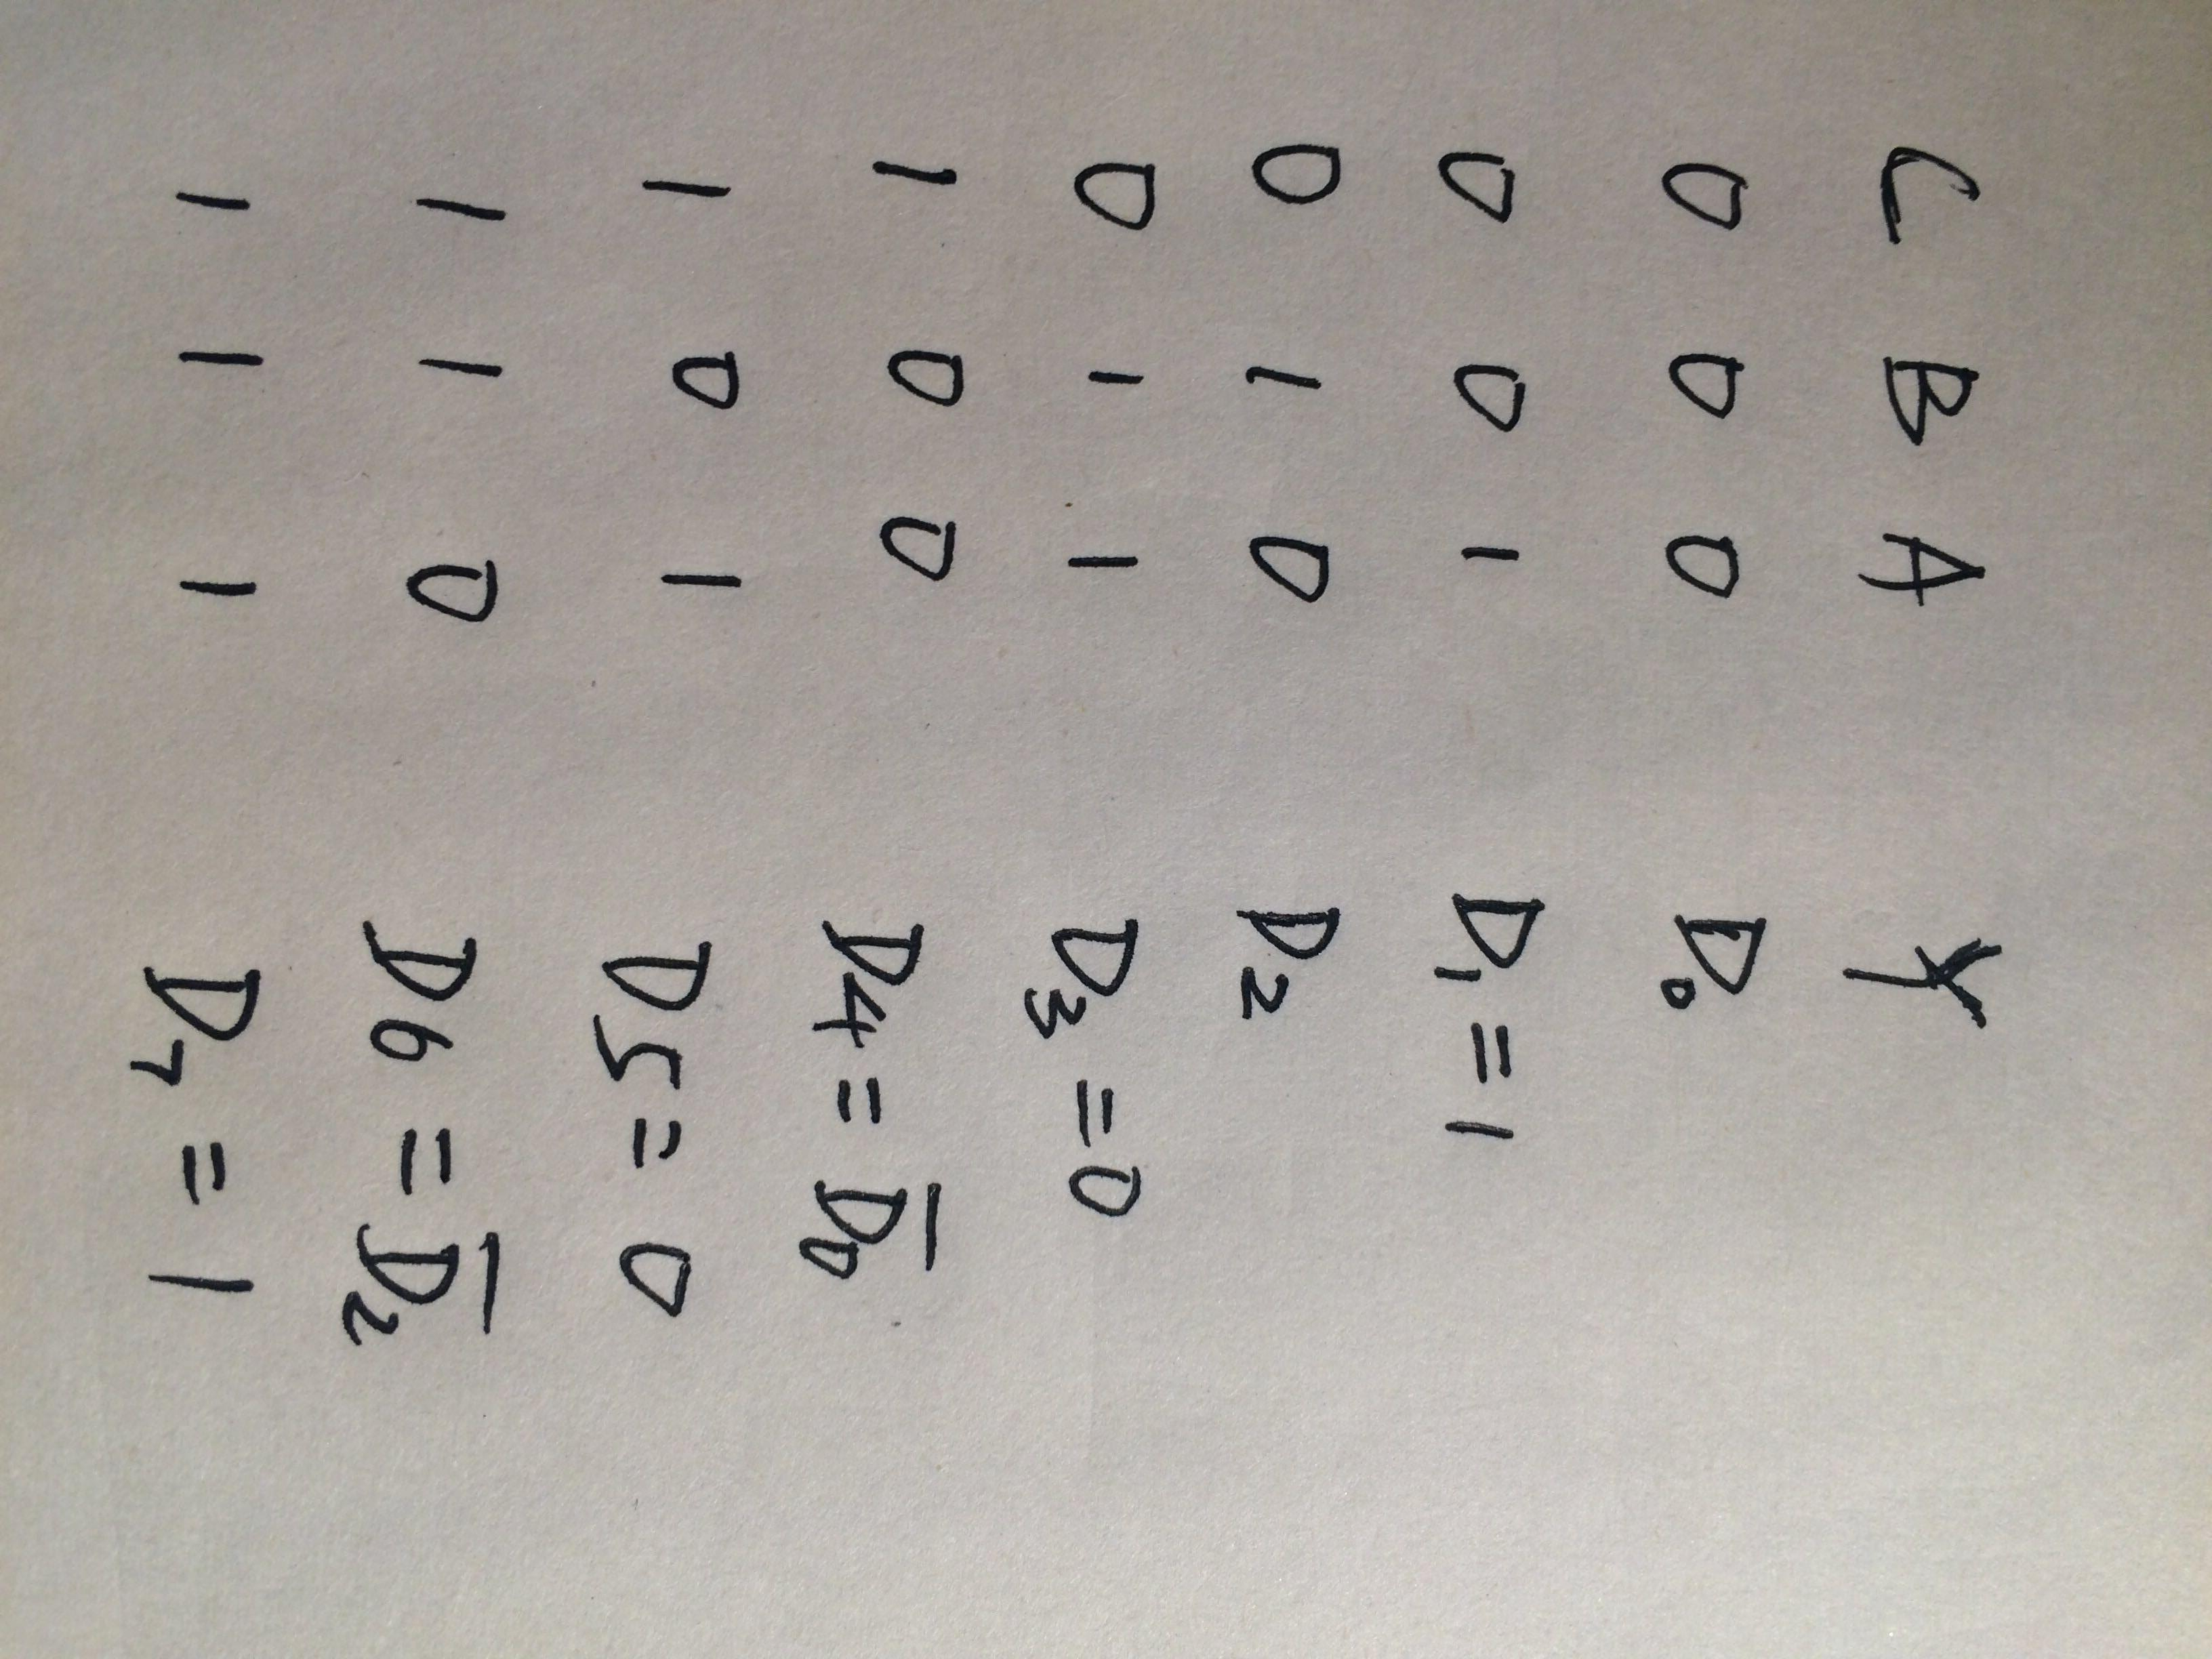 C B A Y
0 0 0 D₀
0 0 1 D₁ = 1
0 1 0 D₂
0 1 1 D₃ = 0
1 0 0 D4 = D̅₀
1 0 1 D5 = 0
1 1 0 D6 = D̅₂
1 1 1 D₇ = 1